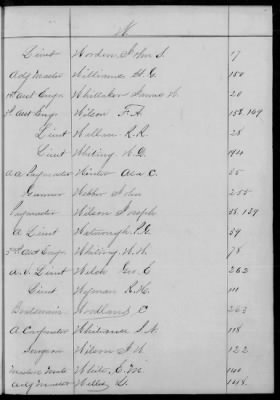 W
Lieut Worden John L. 17
Act Master Williams H. G. 150
1st Asst Engr Whittaker James W. 20
3d Asst Engr Wilson F. A. 158 149
Lieut Wallace R. R. 28
Lieut Whiting W. D.
A A Paymaster Winter Asa C. 35
Gunner Webber John 255
Paymaster Wilson Joseph 58. 129
A Lieut P. G. 59
3d Asst Engr Whiting W. H. 78
A. V. Lieut Welch Geo. E. 262
Lieut Wyman R. H. 111
Boatswain Woodland C 263
A Carpenter S. N. 118
Surgeon Wilson J. W. 122
Masters Mate White C. M. 140
Act Master D. 148